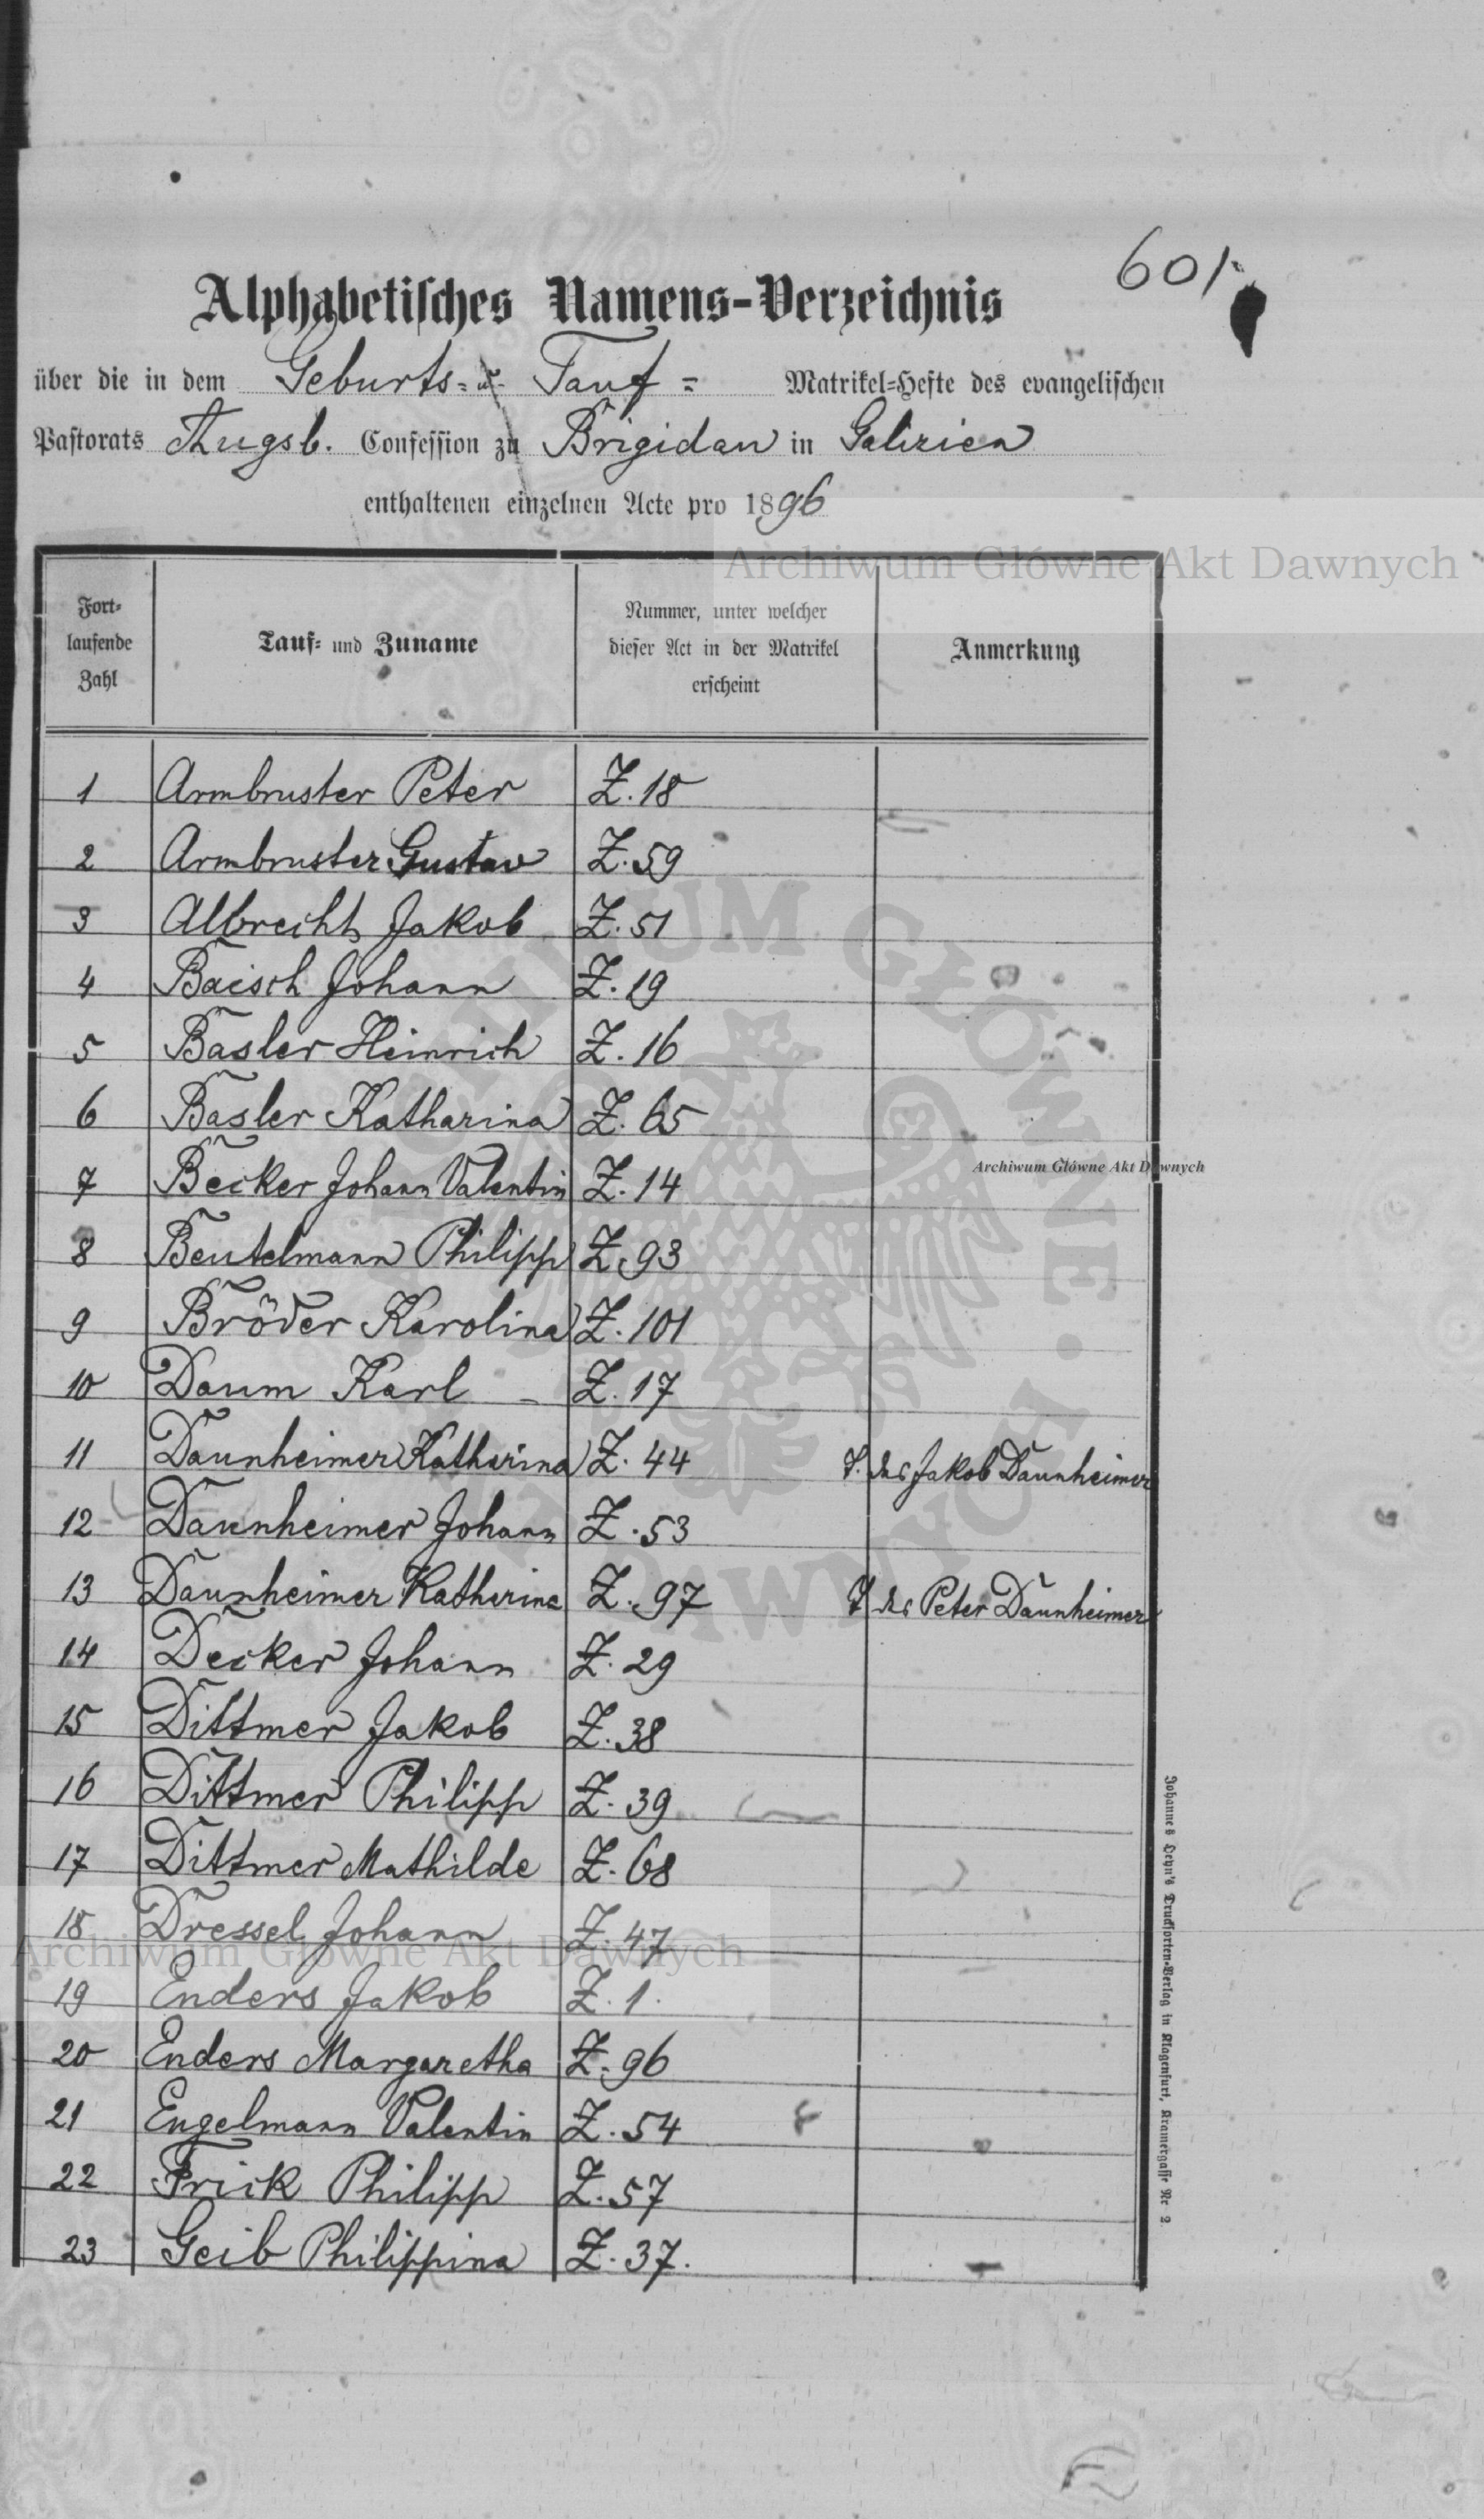 601
Alphabetisches Namens-Verzeichnis
über die in dem Geburts- u. Tauf- Matrikel-Hefte des evangelischen
Pastorats Augsb. Confession zu Brigidau in Galizien
enthaltenen einzelnen Acte pro 1896
Archiwum Główne Akt Dawnych
Fort-
laufende
Zahl
Tauf- und Zuname
Nummer, unter welcher
dieser Act in der Matrikel
erscheint
Anmerkung
1 Armbruster Peter Z. 18
2 Armbruster Gustav Z. 59
3 Albrecht Jakob Z. 51
4 Baisch Johann Z. 19
5 Basler Heinrich Z. 16
6 Basler Katharina Z. 65
7 Becker Johann Valentin Z. 14
Archiwum Główne Akt Dawnych
8 Beutelmann Philipp Z. 93
9 Bröder Karolina Z. 101
10 Daum Karl Z. 17
11 Daunheimer Katharina Z. 44 T. des Jakob Daunheimer
12 Daunheimer Johann Z. 53
13 Daunheimer Katharina Z. 97 T. des Peter Daunheimer
14 Decker Johann Z. 29
15 Dittmer Jakob Z. 38
16 Dittmer Philipp Z. 39
17 Dittmer Mathilde Z. 68
18 Dressel Johann Z. 47
Archiwum Główne Akt Dawnych
19 Enders Jakob Z. 1.
20 Enders Margaretha Z. 96
21 Engelmann Valentin Z. 54
22 Frick Philipp Z. 57
23 Geib Philippina Z. 37.
Johannes Heyn's Drucksorten-Verlag in Klagenfurt, Kramergasse Nr 2
ARCHIWUM GŁÓWNE AKT DAWNYCH